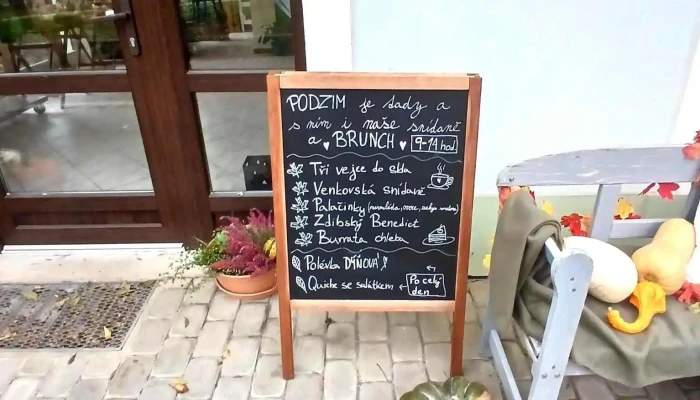 PODZIM je tady a
s ním i naše snídaně
a BRUNCH 9-14 hod.
Tři vejce do skla
Venkovská snídaně
Palačinky (marmeláda, ovoce,
Zdibský Benedict
Burrata chleba
Polévka DÝŇOVÁ!
Quiche se salátkem Po celý
den